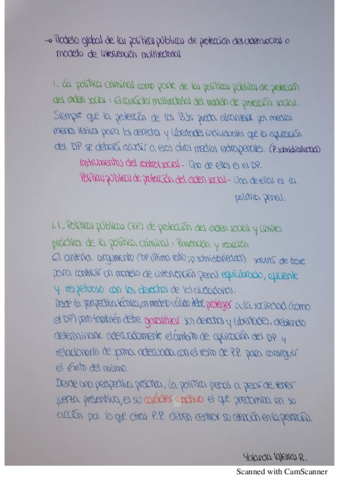 → Modelo global de las políticas públicas de protección del orden social o
modelo de intervención multisectorial
1. La política criminal como parte de las políticas públicas de protección
del orden social: El carácter multisectorial del modelo de protección social.
Siempre que la protección de los BJs pueda alcanzarse por medios
menos lesivos para los derechos y libertades individuales que la aplicación
del DP se deberá acudir a esos otros medios extrapenales (P. subsidiariedad)
Instrumentos del control social - Uno de ellos es el DP.
Políticas públicas de protección del orden social - Una de ellas es la
política penal.
1.1. Políticas públicas (PP) de protección del orden social y límites
prácticos de la política criminal: Prevención y reacción
El anterior argumento (DP última ratio; p. subsidiariedad) servirá de base
para construir un modelo de intervención penal equilibrado, eficiente
y respetuoso con los derechos de los ciudadanos.
Desde la perspectiva técnica, un modelo válido debe proteger a la sociedad (como
el DP) pero también debe garantizar sus derechos y libertades, debiendo
determinarse adecuadamente el ámbito de aplicación del DP y
relacionarlo de forma adecuada con el resto de P.P. para conseguir
el éxito del mismo.
Desde una perspectiva práctica, la política penal a pesar de tener
cierta preventiva, es su carácter reactivo el que predomina en su
acción por lo que otras P.P. deben centrar su atención en la prevención.
Yolanda R.
Scanned with CamScanner